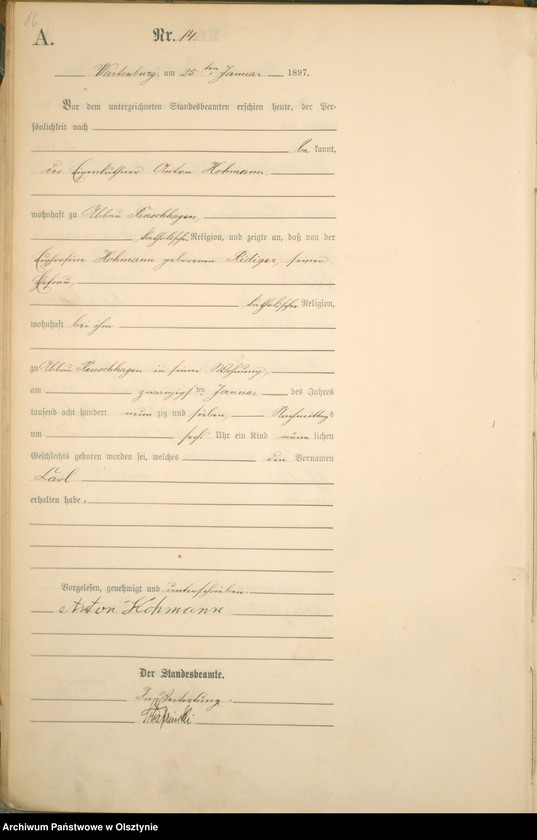 16
A.
Nr. 14
Wartenburg, am 25ten Januar 1897.
Vor dem unterzeichneten Standesbeamten erschien heute, der Per-
sönlichkeit nach
be kannt,
der Eigenkäthner Anton Hohmann
wohnhaft zu Abbau Reuschhagen,
katholischer Religion, und zeigte an, daß von der
Euphrosine Hohmann geborenen Rüdiger, seiner
Ehefrau,
katholischer Religion,
wohnhaft bei ihm
zu Abbau Reuschhagen in seiner Wohnung,
am zwanzigsten Januar des Jahres
tausend acht hundert neun zig und sieben, Nachmittags
um sechs Uhr ein Kind männ lichen
Geschlechts geboren worden sei, welches den Vornamen
Carl
erhalten habe.
Vorgelesen, genehmigt und unterschrieben.
Anton Hohmann
Der Standesbeamte.
In Vertretung.
Archiwum Państwowe w Olsztynie